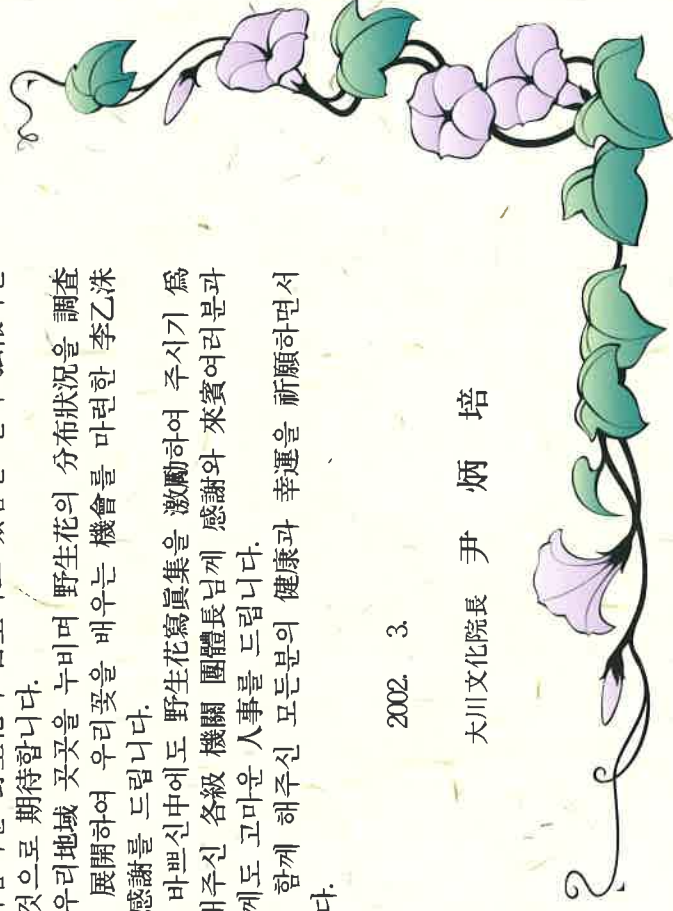 것으로 期待합니다.
우리地域 곳곳을 누비며 野生花의 分布狀況을 調査
展開하여 우리꽃을 배우는 機會를 마련한 李乙洙
感謝를 드립니다.
바쁘신中에도 野生花寫眞集을 激勵하여 주시기 爲
해주신 各級 機關 團體長님께 感謝와 來賓여러분과
께도 고마운 人事를 드립니다.
함께 해주신 모든분의 健康과 幸運을 祈願하면서
다.
2002. 3.
大川文化院長 尹 炳 培